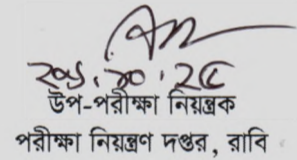 উপ-পরীক্ষা নিয়ন্ত্রক
পরীক্ষা নিয়ন্ত্রণ দপ্তর, রাবি